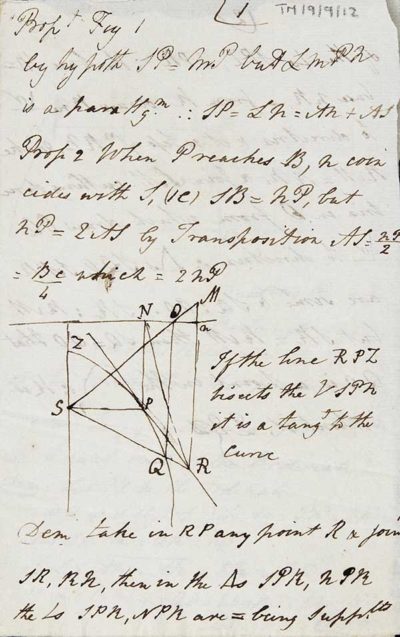 1
TM/9/9/12
Propn. Fig 1
by hypoth SP = mP but ALmPN
is a parallgm ∴ SP = Ln = An + AS
Prop 2 When P reaches B, n coin
cides with S, (ie) SB = nP, but
nP = 2AS by Transposition AS = nP/2
= Bc/4 which = 2nP
M
N O n
Z
S P
Q R
If the line RPZ
bisects the V SPN
it is a tangt to the
curve
Dem take in RP any point R & join
SR, RN, then in the Δs SPR, NPR
the Ls SPR, NPR are = being Suppts